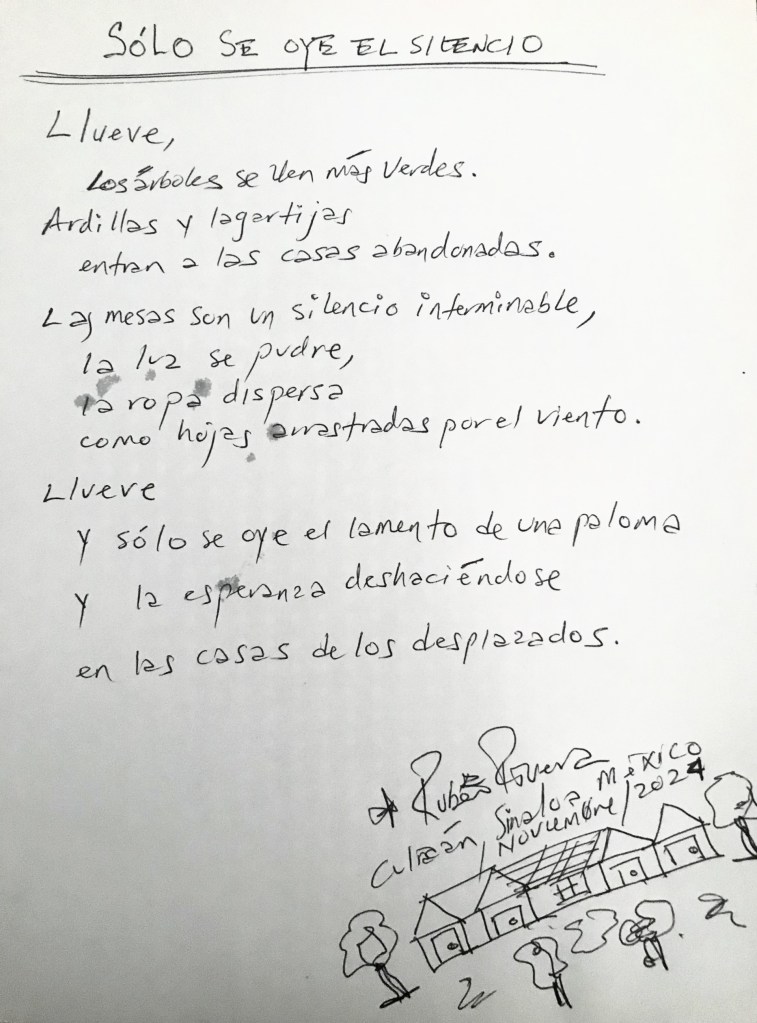 SÓLO SE OYE EL SILENCIO
Llueve,
Los árboles se ven más verdes.
Ardillas y lagartijas
entran a las casas abandonadas.
Las mesas son un silencio interminable,
la luz se pudre,
la ropa dispersa
como hojas arrastradas por el viento.
Llueve
y sólo se oye el lamento de una paloma
y la esperanza deshaciéndose
en las casas de los desplazados.
Rubén Rivera
Culiacán, Sinaloa MÉXICO
NOVIEMBRE/2024